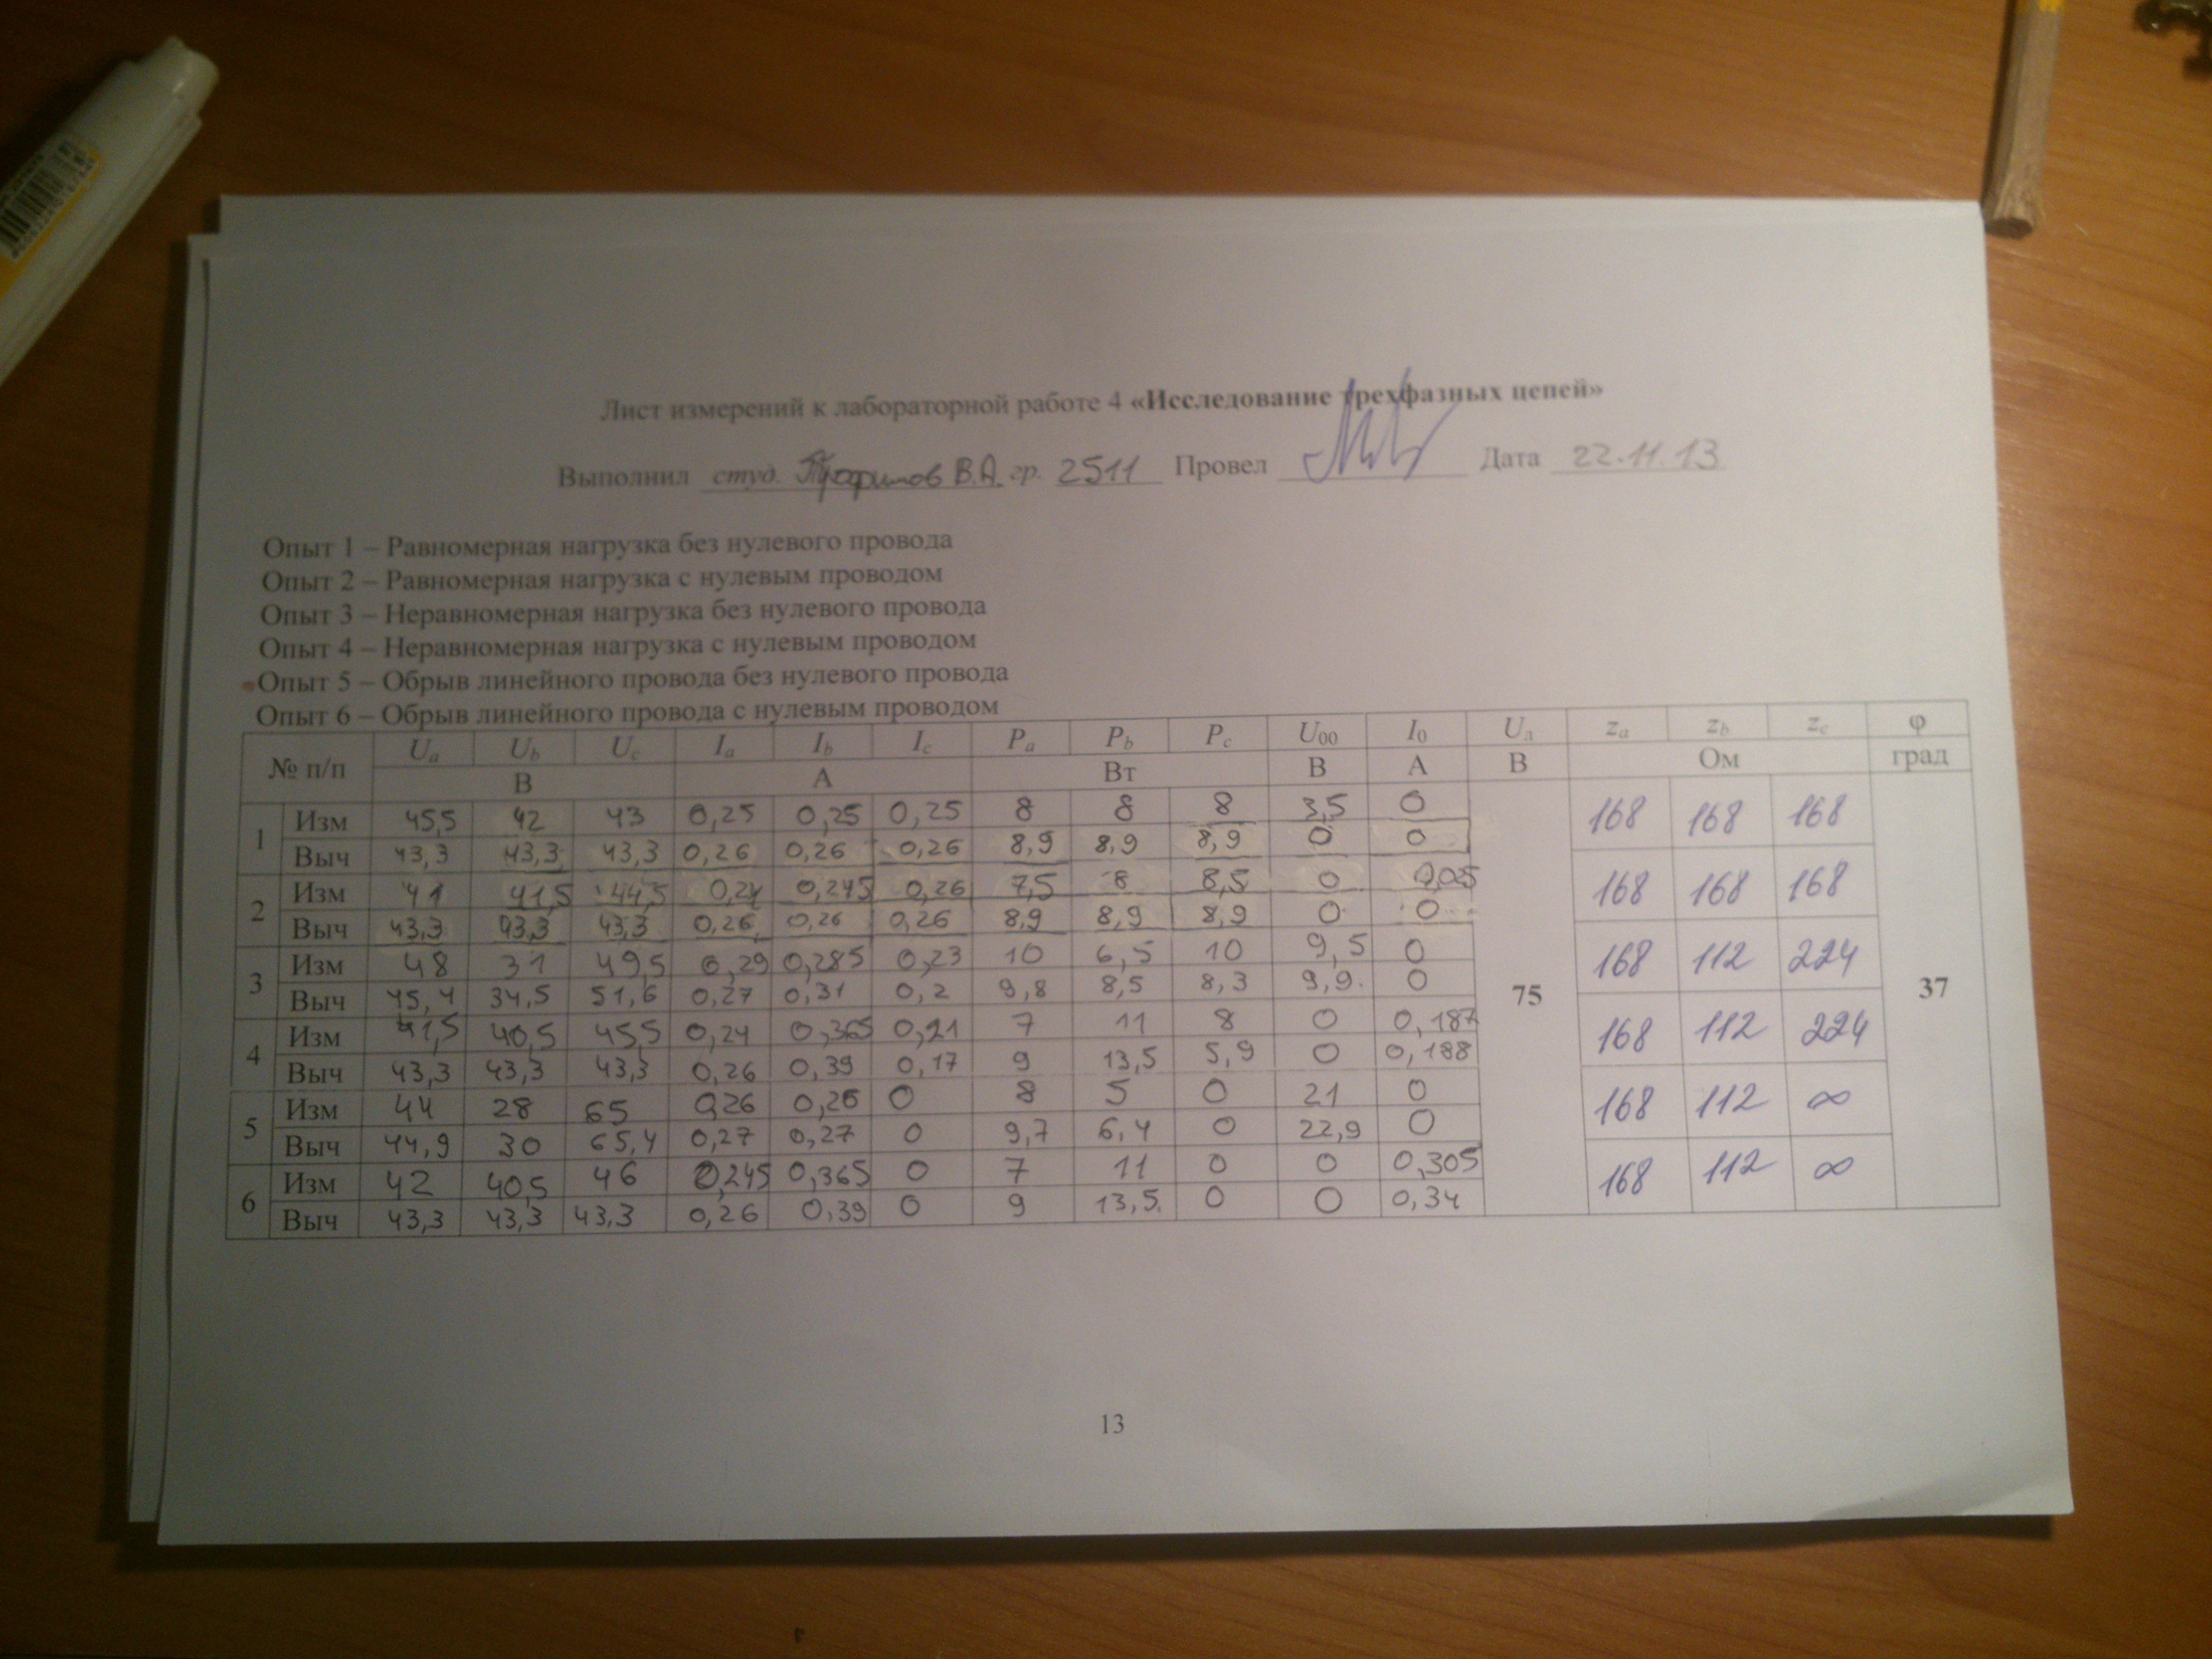 Лист измерений к лабораторной работе 4 «Исследование трехфазных цепей»
Выполнил студ. Трофимов В.А. гр. 2511 Провел Дата 22.11.13
Опыт 1 – Равномерная нагрузка без нулевого провода
Опыт 2 – Равномерная нагрузка с нулевым проводом
Опыт 3 – Неравномерная нагрузка без нулевого провода
Опыт 4 – Неравномерная нагрузка с нулевым проводом
Опыт 5 – Обрыв линейного провода без нулевого провода
Опыт 6 – Обрыв линейного провода с нулевым проводом
№ п/п Ua Ub Uc Ia Ib Ic Pa Pb Pc U00 I0 Uл za zb zc φ
В А Вт В А В Ом град
1 Изм 45,5 42 43 0,25 0,25 0,25 8 8 8 3,5 0 168 168 168
Выч 43,3 43,3 43,3 0,26 0,26 0,26 8,9 8,9 8,9 0 0
2 Изм 41 41,5 44,5 0,24 0,245 0,26 7,5 8 8,5 0 0,025 168 168 168
Выч 43,3 43,3 43,3 0,26 0,26 0,26 8,9 8,9 8,9 0 0
3 Изм 48 31 49,5 0,29 0,285 0,23 10 6,5 10 9,5 0 168 112 224
Выч 45,4 34,5 51,6 0,27 0,31 0,2 9,8 8,5 8,3 9,9 0 75 37
4 Изм 41,5 40,5 45,5 0,24 0,365 0,21 7 11 8 0 0,187 168 112 224
Выч 43,3 43,3 43,3 0,26 0,39 0,17 9 13,5 5,9 0 0,188
5 Изм 44 28 65 0,26 0,26 0 8 5 0 21 0 168 112 ∞
Выч 44,9 30 65,4 0,27 0,27 0 9,7 6,4 0 22,9 0
6 Изм 42 40,5 46 0,245 0,365 0 7 11 0 0 0,305 168 112 ∞
Выч 43,3 43,3 43,3 0,26 0,39 0 9 13,5 0 0 0,34
13